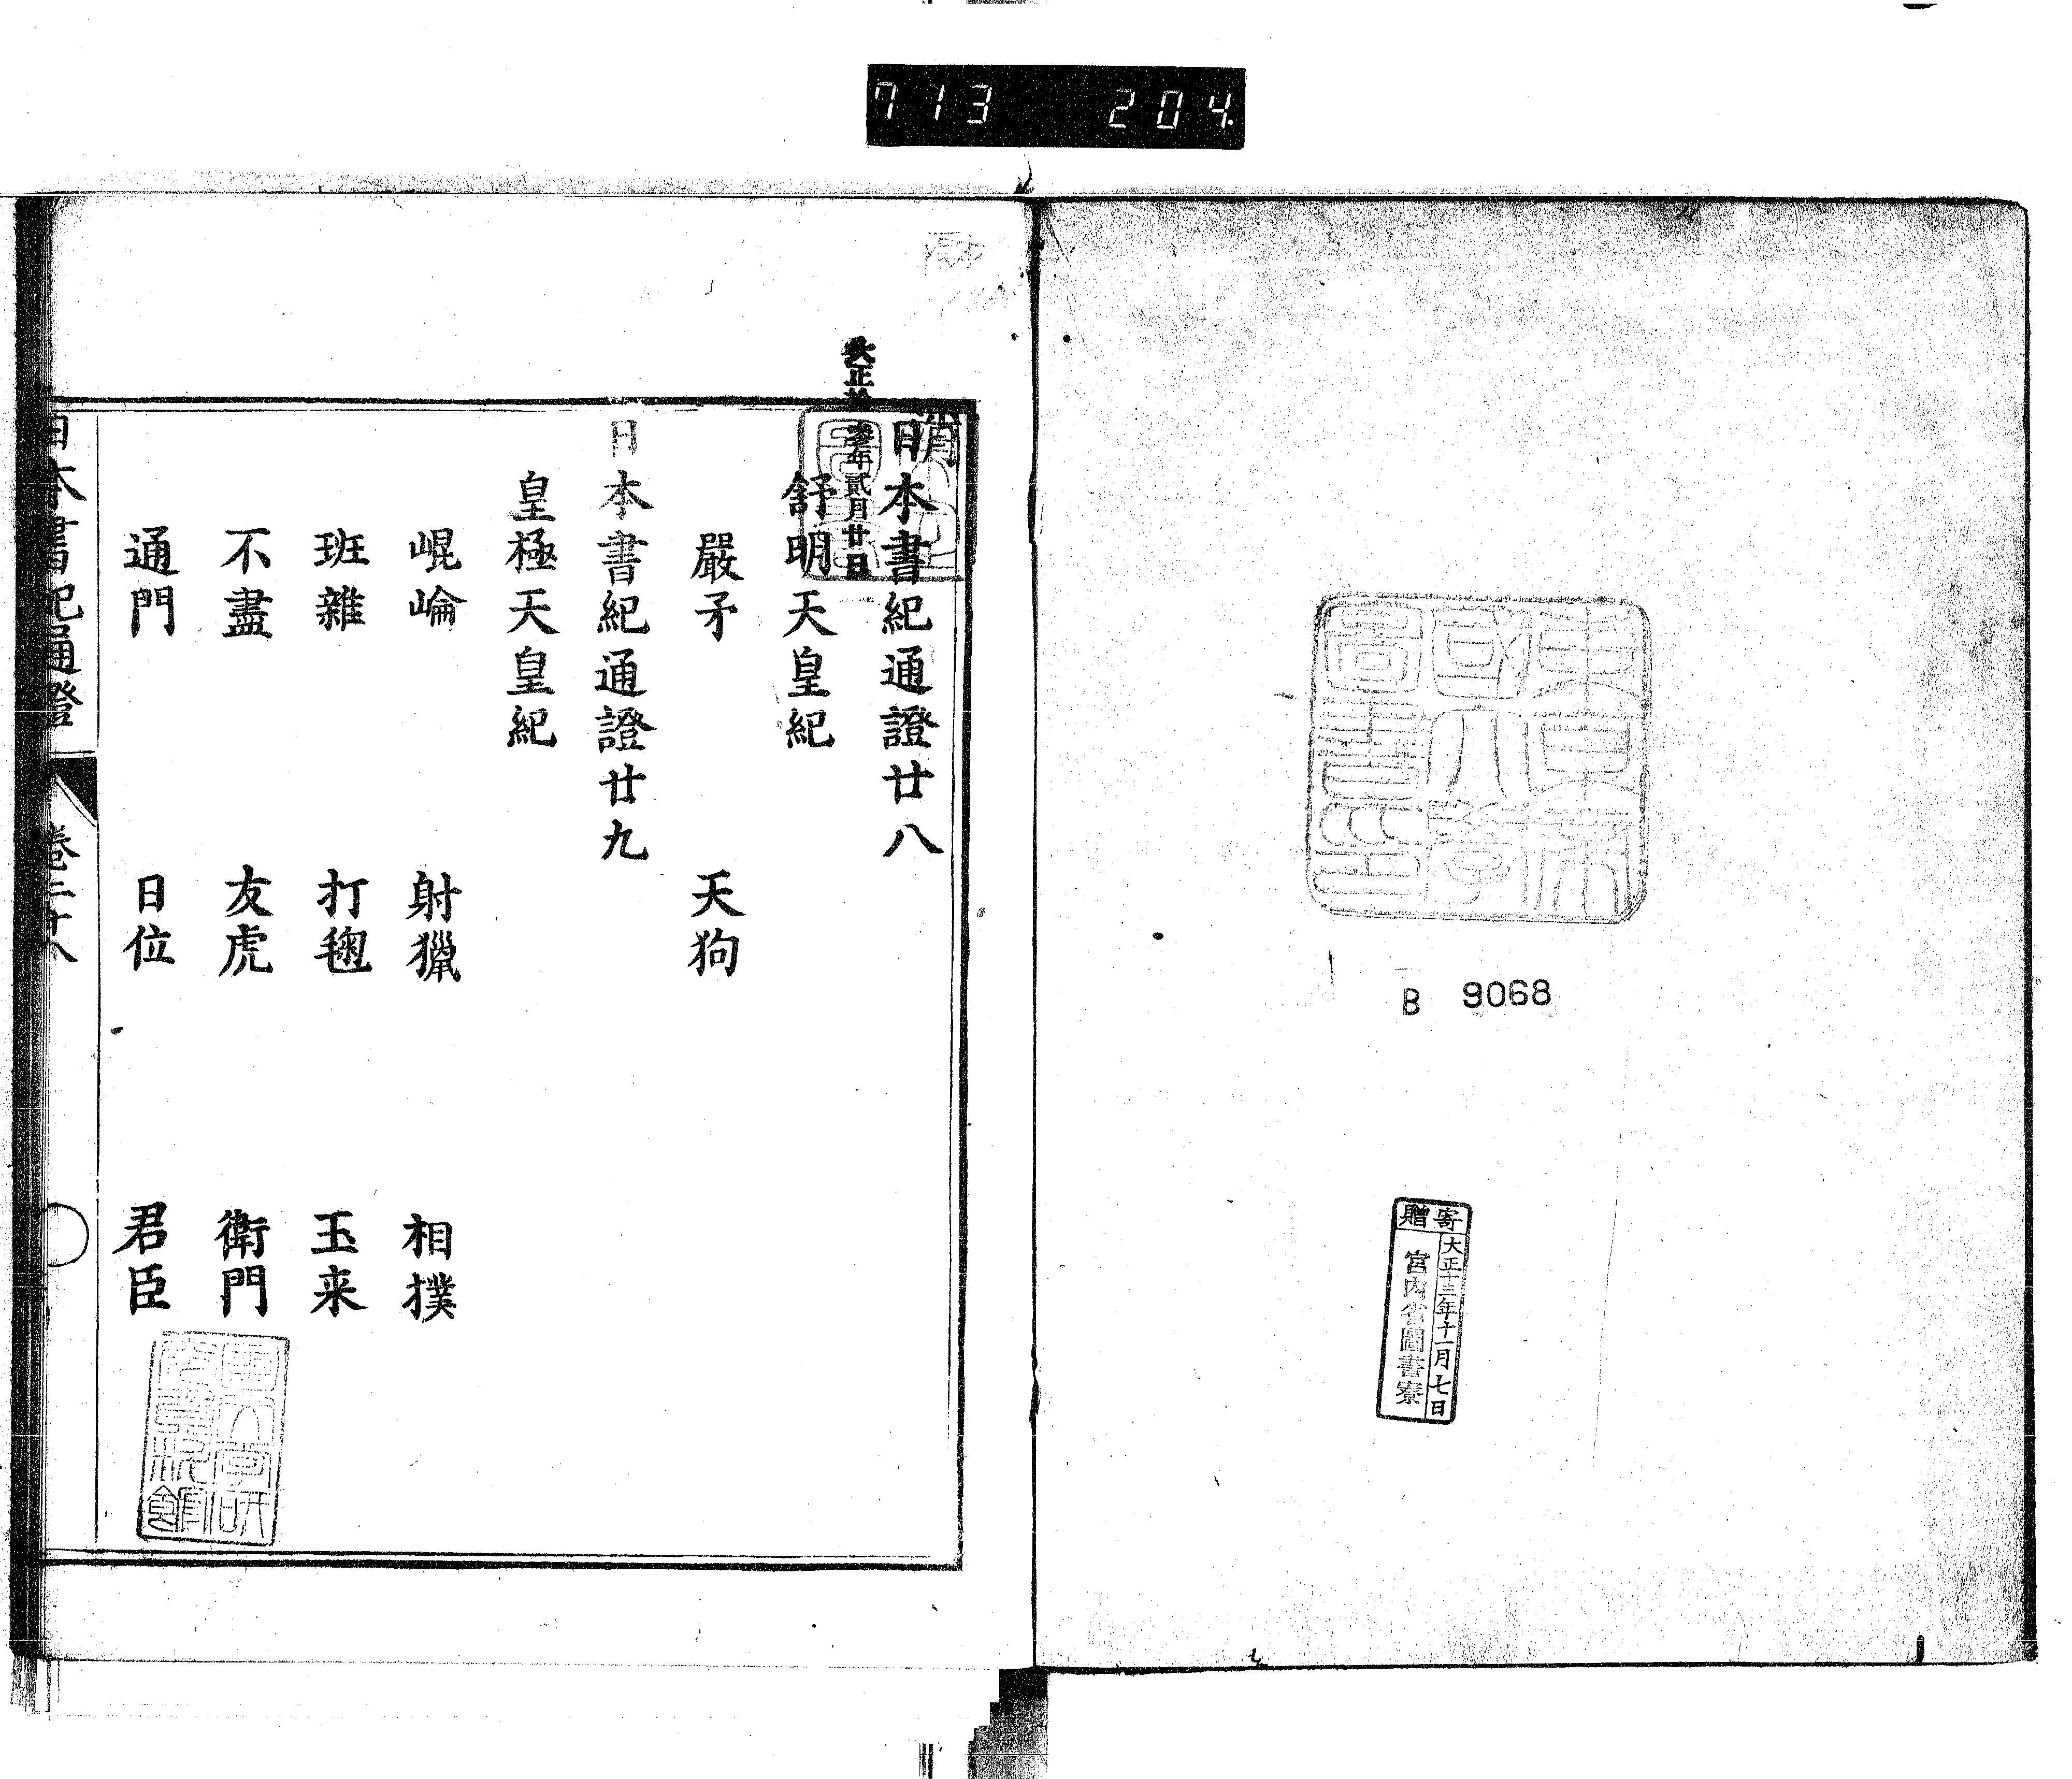 713 204
東京帝國大學圖書印
B 9068
寄贈
大正十三年十一月七日
宮内省圖書寮
大正拾參年貳月廿日
日本書紀通證廿八
舒明天皇紀
嚴矛 天狗
日本書紀通證廿九
皇極天皇紀
崐崘 射獵 相撲
班雜 打毱 玉来
不盡 友虎 衛門
通門 日位 君臣
日本書紀通證 卷二十八